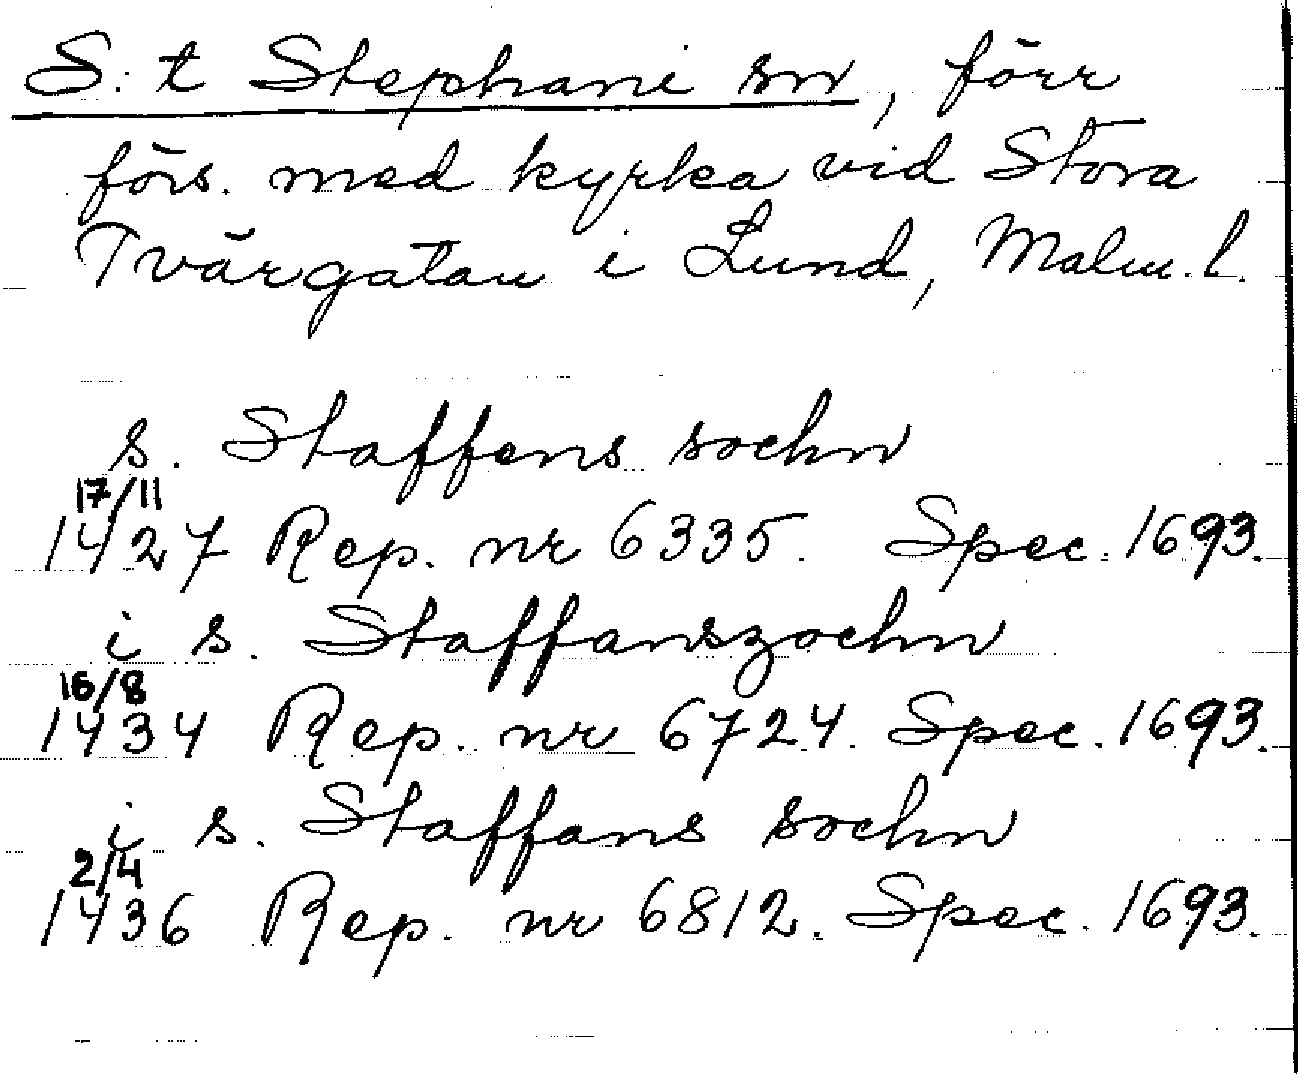 S:t Stephani sn, förr
förs. med kyrka vid Stora
Tvärgatan i Lund, Malm. l.
s. Staffens sochn
17/11
1427 Rep. nr 6335. Spec. 1693.
i s. Staffanszochn
16/8
1434 Rep. nr 6724. Spec. 1693.
i s. Staffans sochn
2/4
1436 Rep. nr 6812. Spec. 1693.